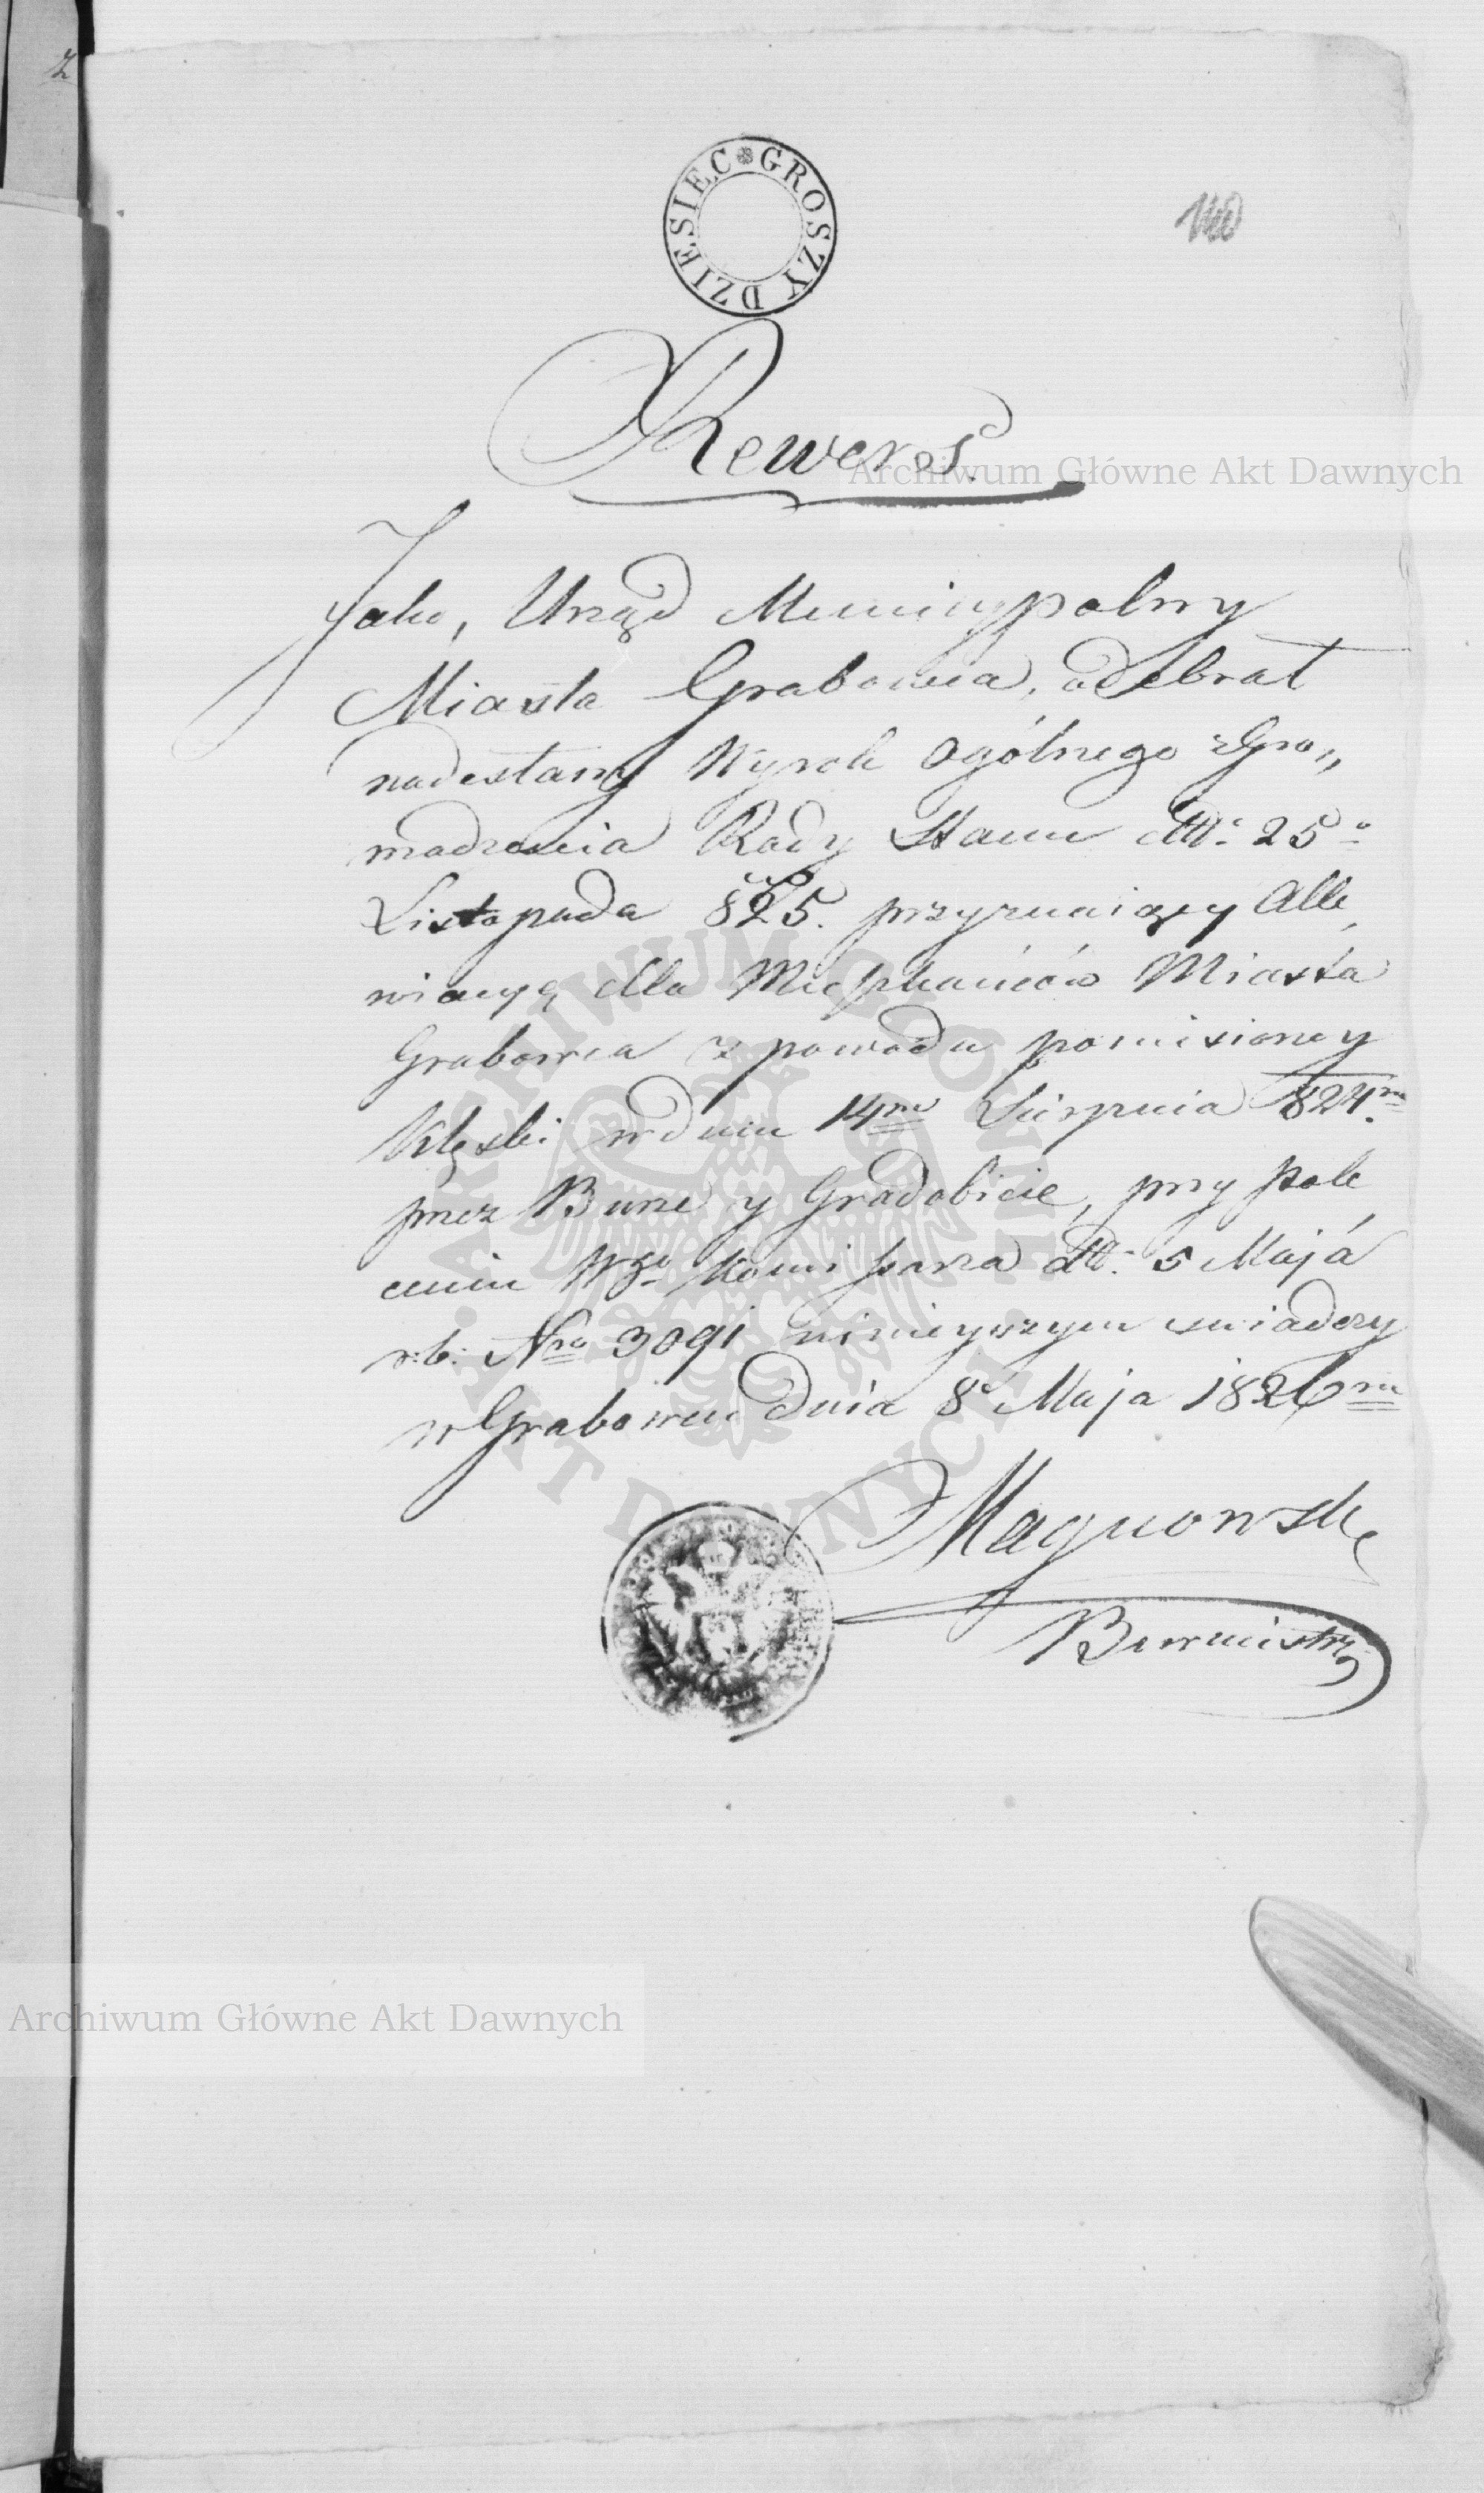 2
DZIESIEC * GROSZY
140
Rewers
Jako, Urząd Municypalny
Miasta Grabowca, odebrał
nadesłany Wyrok Ogólnego zgro„
madzenia Rady Stanu dtt: 25°
Listopada 825. przyznaiący Alle,
wiacyą dla Mieszkańców Miasta
Grabowca z powodu poniesioney
Klęski w dniu 14m Sierpnia 824m.
przez Burze y Gradobicie, przy pole
ceniu Wgo Kommissarza dtt: 5 Maja
r: b: Nro 3091 ninieyszym swiadczy
w Grabowcu dnia 8° Maja 1826m
Magnowski
Burmistrz
Archiwum Główne Akt Dawnych
ARCHIWUM GŁÓWNE AKT DAWNYCH
Archiwum Główne Akt Dawnych